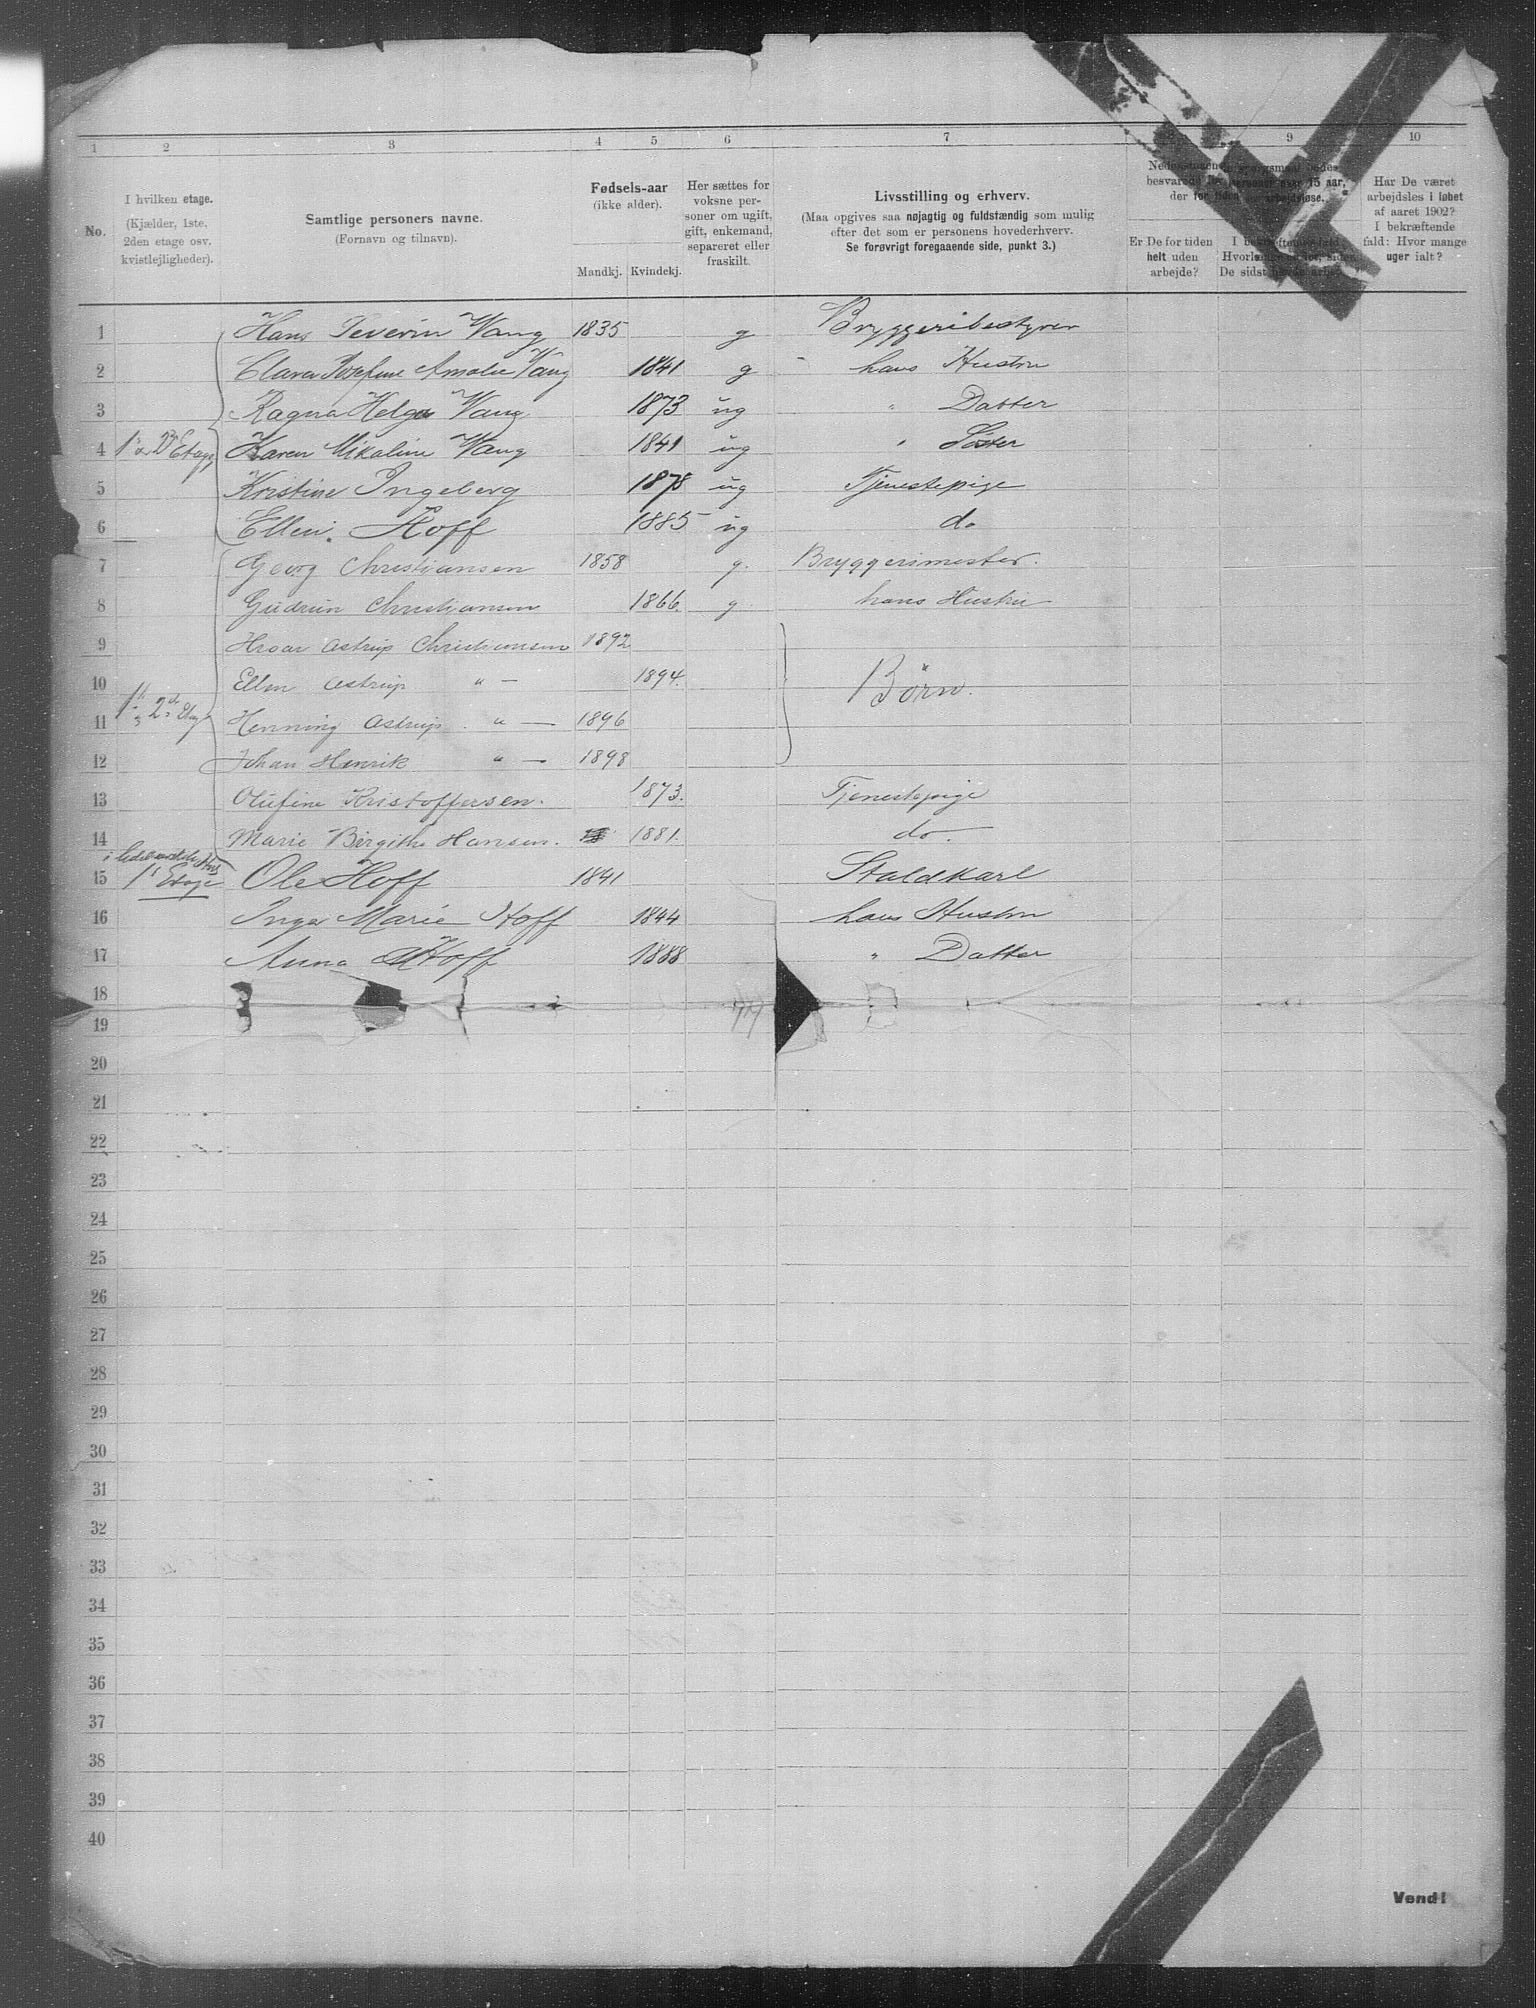 1 2 3 4 5 6 7 9 10
No.
I hvilken etage.
(Kjælder, 1ste,
2den etage osv.
kvistlejligheder).
Samtlige personers navne.
(Fornavn og tilnavn).
Fødsels-aar
(ikke alder).
Mandkj. Kvindekj.
Her sættes for
voksne per-
soner om ugift,
gift, enkemand,
separeret eller
fraskilt.
Livsstilling og erhverv.
(Maa opgives saa nøjagtig og fuldstændig som mulig
efter det som er personens hovederhverv.
Se forøvrigt foregaaende side, punkt 3.)
besvares
personer over 15 aar,
der for tiden arbejdsløse.
Er De for tiden
helt uden
arbejde?
I bekræftende fald
De sidst
Har De været
arbejdsløs i løbet
af aaret 1902?
I bekræftende
fald: Hvor mange
uger ialt?
1 Hans Severin Wang 1835 g Bryggeribestyrer
2 Clara Josefine Amalie Wang 1841 g hans Hustru
3 Ragna Helga Wang 1873 ug " Datter
4 Etage Karen Mikaline Wang 1841 ug " Søster
5 Kristine Ingeberg 1878 ug Tjenestepige
6 Ellen Hoff 1885 ug do
7 Georg Christiansen 1858 g. Bryggerimester.
8 Gudrun Christiansen 1866. g. hans Hustru
9 Hroar Astrup Christiansen 1892
10 Ellen Astrup " — 1894. Børn.
11 2d Etage Henning Astrup. " — 1896
12 Johan Henrik " — 1898
13 Olufine Kristoffersen. 1873. Tjenestepige
14 Marie Birgithe Hansen. 1881. do.
15 1st Etage Ole Hoff 1841 Staldkarl
16 Inger Marie Hoff 1844 hans Hustru
17 Anna Hoff 1888 " Datter
18
19
20
21
22
23
24
25
26
27
28
29
30
31
32
33
34
35
36
37
38
39
40
Vend!